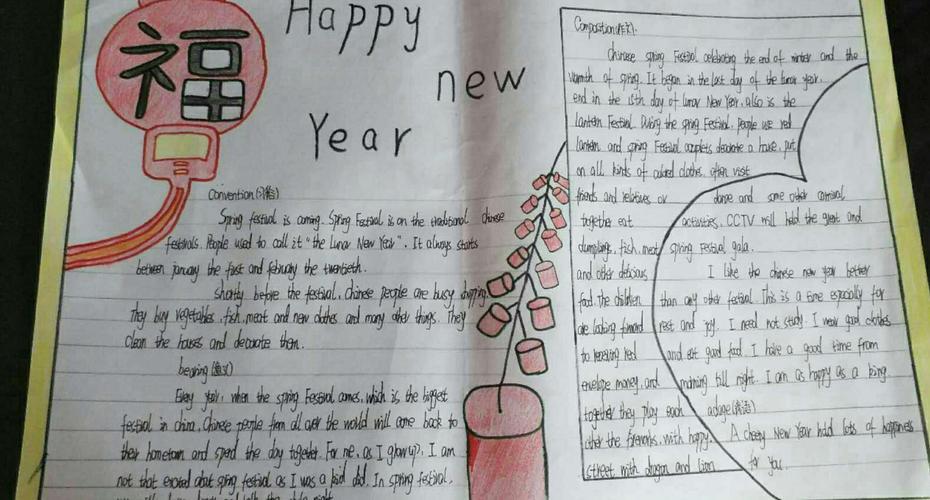 福
Happy
new
Year
Convention(习俗)
Spring festival is coming. Spring Festival is on the traditional Chinese
festivals. People used to call it "the Lunar New Year". It always starts
between january the first and february the twentieth.
Shortly before the festival, Chinese people are busy shopping.
They buy vegetables, fish, meat and new clothes and many other things. They
clean the houses and decorate them.
bearing(意义)
Every year, when the spring Festival comes, which is the biggest
festival in china, Chinese people from all over the world will come back to
their hometown and spend the day together. For me, as I glow up, I am
not that excited about spring festival as I was a kid did. In spring festival,
Composition(作文).
Chinese spring Festival celebrating the end of winter and the
warmth of spring. It began in the last day of the lunar year,
end in the 15th day of lunar New Year, also is the
lantern Festival. During the spring Festival, people use red
lantern and spring Festival couplets decorate a house, put
on all kinds of colored clothes, often visit
friends and relatives or
together eat
dumplings, fish, meat
and other delicious
food. the children
are looking forward
to receiving red
envelope money, and
together they play each
other the fireworks, with happy.
street with dragon and lion
dance and some other carnival
activities. CCTV will hold the great and
spring Festival gala.
I like the chinese new year better
than any other festival. This is a time especially for
rest and joy. I need not study. I wear good clothes
and eat good food. I have a good time from
morning till night. I am as happy as a king.
adage(谚语)
A cheery New Year hold lots of happiness
for you.